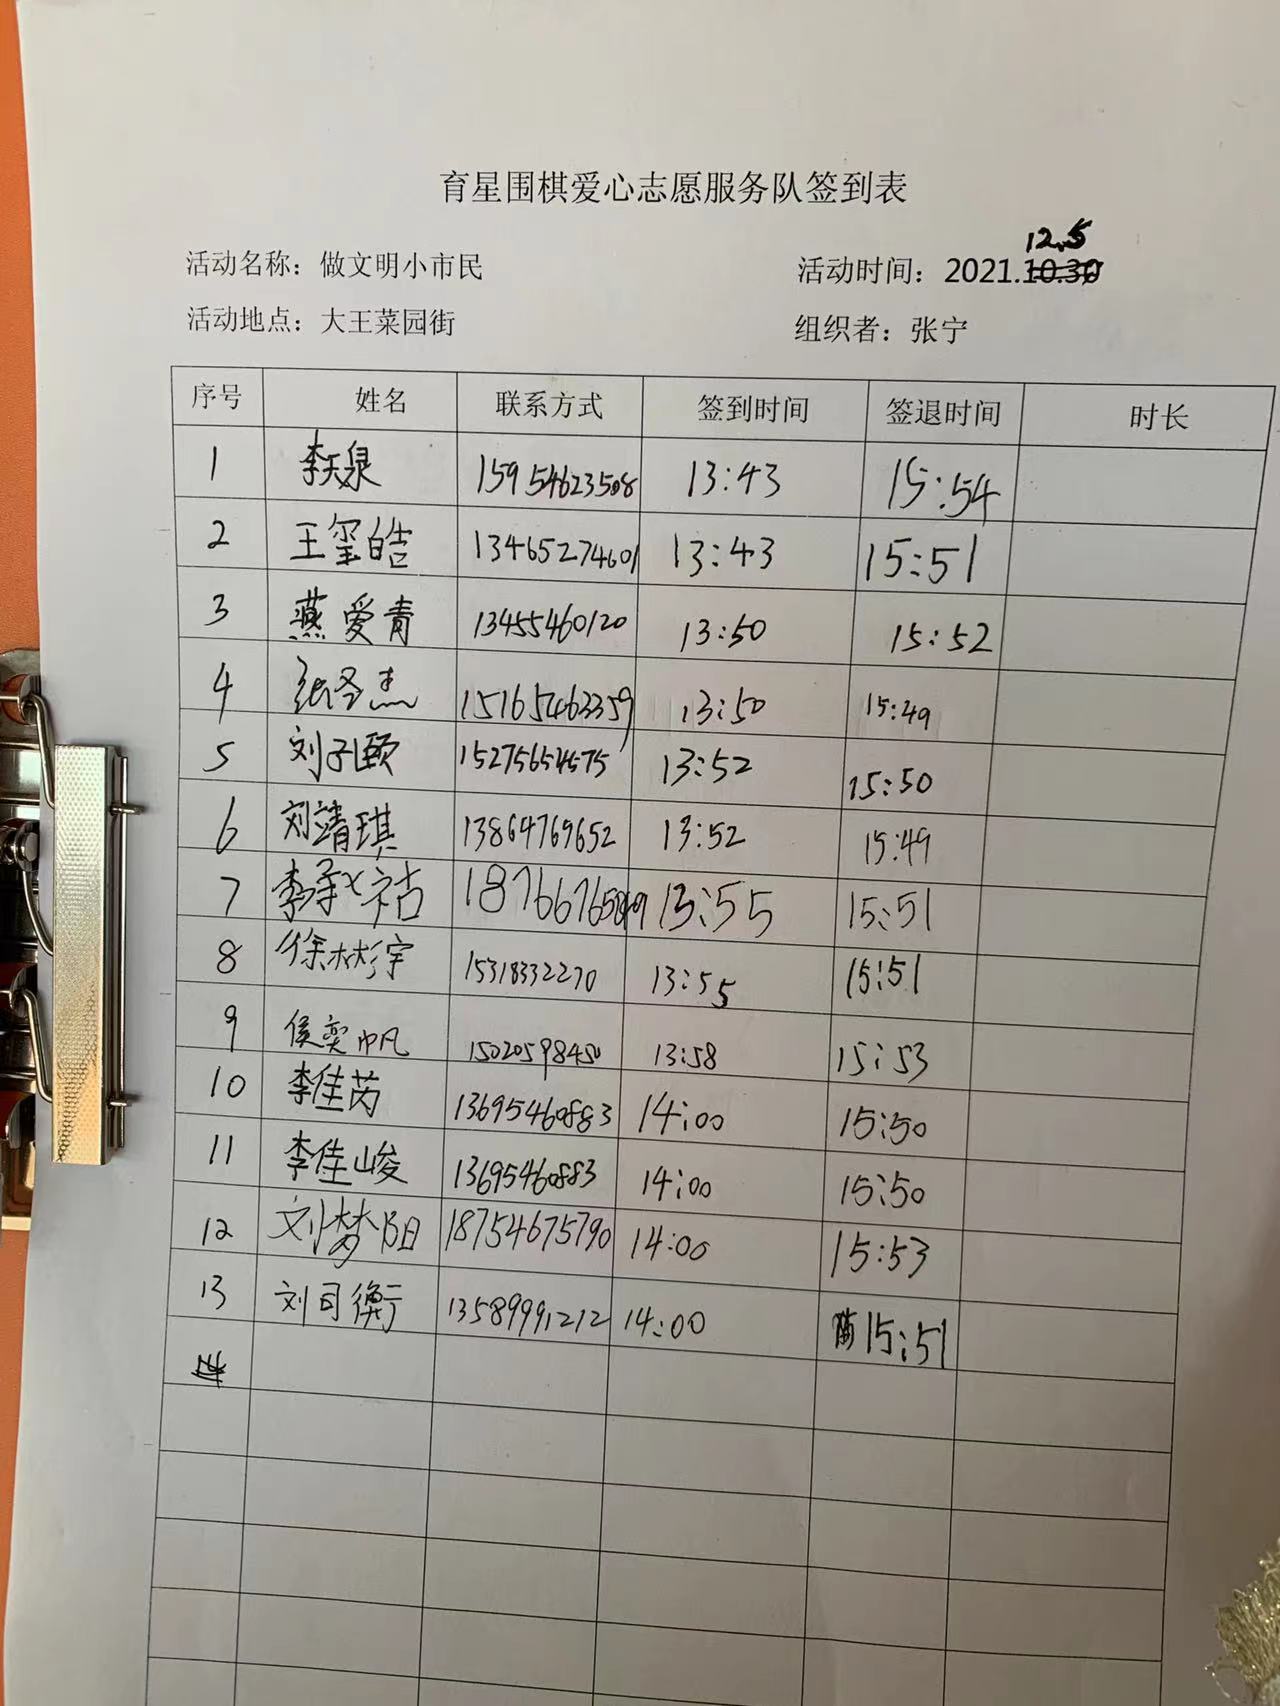 育星围棋爱心志愿服务队签到表
12.5
活动名称：做文明小市民 活动时间：2021.10.30
活动地点：大王菜园街 组织者：张宁
序号 姓名 联系方式 签到时间 签退时间 时长
1 李天泉 15954623508 13:43 15:54
2 王玺皓 13465274601 13:43 15:51
3 燕爱青 13455460120 13:50 15:52
4 张圣杰 15165463359 13:50 15:49
5 刘子颐 15275654575 13:52 15:50
6 刘靖琪 13864769652 13:52 15:49
7 李承祜 13:55 15:51
8 徐彬宇 15318332270 13:55 15:51
9 侯奕帆 15020598450 13:58 15:53
10 李佳芮 13695460883 14:00 15:50
11 李佳峻 13695460883 14:00 15:50
12 刘梦阳 18754675790 14:00 15:53
13 刘司衡 13589991212 14:00 15:51